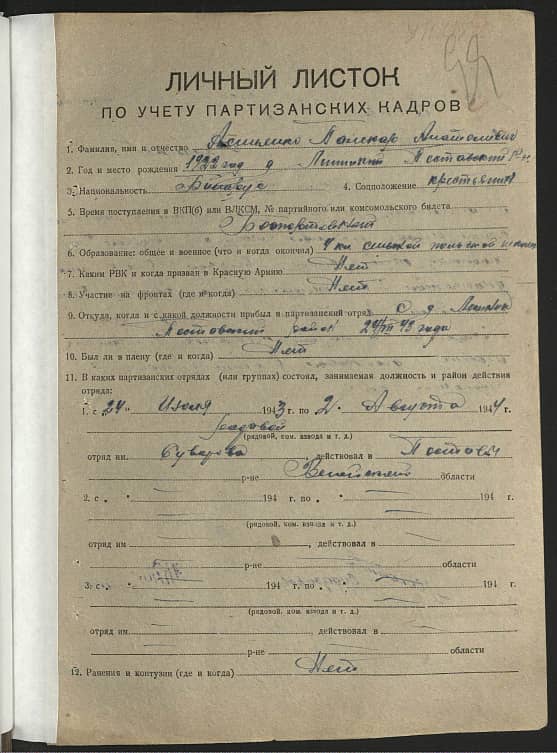 ЛИЧНЫЙ ЛИСТОК
ПО УЧЕТУ ПАРТИЗАНСКИХ КАДРОВ
1. Фамилия, имя и отчество Анатольевич
2. Год и место рождения 1922 год д
3. Национальность Беларус 4. Соцположение крестьянин
5. Время поступления в ВКП(б) или ВЛКСМ, № партийного или комсомольского билета
Беспартийный
6. Образование: общее и военное (что и когда окончил) 4 кл сельской польской школы
7. Каким РВК и когда призван в Красную Армию Нет
8. Участие на фронтах (где и когда) Нет
9. Откуда, когда и с какой должности прибыл в партизанский отряд С д
район 43 года
10. Был ли в плену (где и когда) Нет
11. В каких партизанских отрядах (или группах) состоял, занимаемая должность и район действия
отряда:
1. с 24 Июля 1943 г. по 2 Августа 1944 г.
Рядовой
(рядовой, ком. взвода и т. д.)
отряд им. Суворова, действовал в
р-не Вилейской области
2. с 194 г. по 194 г.
(рядовой, ком. взвода и т. д.)
отряд им. , действовал в
р-не области
3. с 194 г. по 194 г.
(рядовой, ком. взвода и т. д.)
отряд им. , действовал в
р-не области
12. Ранения и контузии (где и когда) Нет